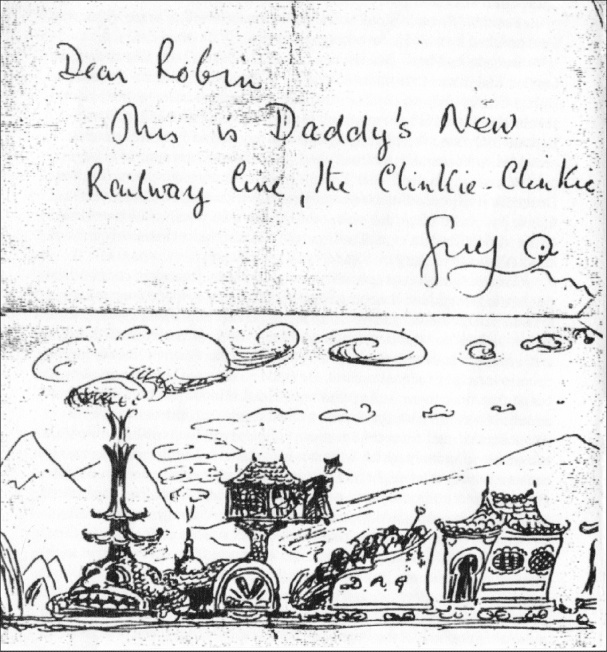 Dear Robin
This is Daddy's New
Railway line, the Clinkie-Clinkie
Guy
DAG